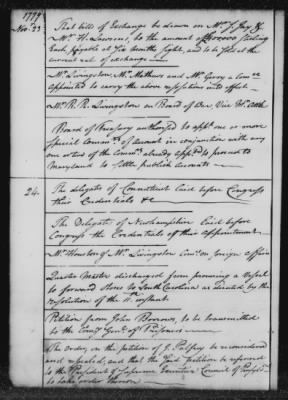 1779
Nov. 23
That bills of Exchange be drawn on Mr. J. Jay &
Mr. H. Lawrens, to the amount of £100000 sterling
Each, payable at Six Months sight, and to be sold at the
current rate of exchange
Mr. Livingston, Mr. Mathews and Mr. Gerry a Comee
appointed to carry the above resolution into effect
Mr. R. R. Livingston on Board of War, Vice
Board of Treasury authorised to appt. one or more
special Commrs. of accounts in conjunction with any
one or two of the Commrs. already appd. to proceed to
Maryland to settle publick accounts
24.
The delegate of Connecticut laid before Congress
their Credentials &c
The Delegate of Newhampshire laid before
Congress the Credentials of their appointment
Mr. Houston & Mr. Livingston Come. on foreign affairs
Quarter Master discharged from procuring a Vessel
to forward stores to South Carolina as directed by the
resolution of the 11. instant
Petition from John Borrows, to be transmitted
to the Comy. Genl. of Prisoners
The order, on the petition of J. Palfrey be reconsidered
and repealed, and that the said petition be referred
to the President & Supreme Executive Council of Pensylva.
to take order thereon